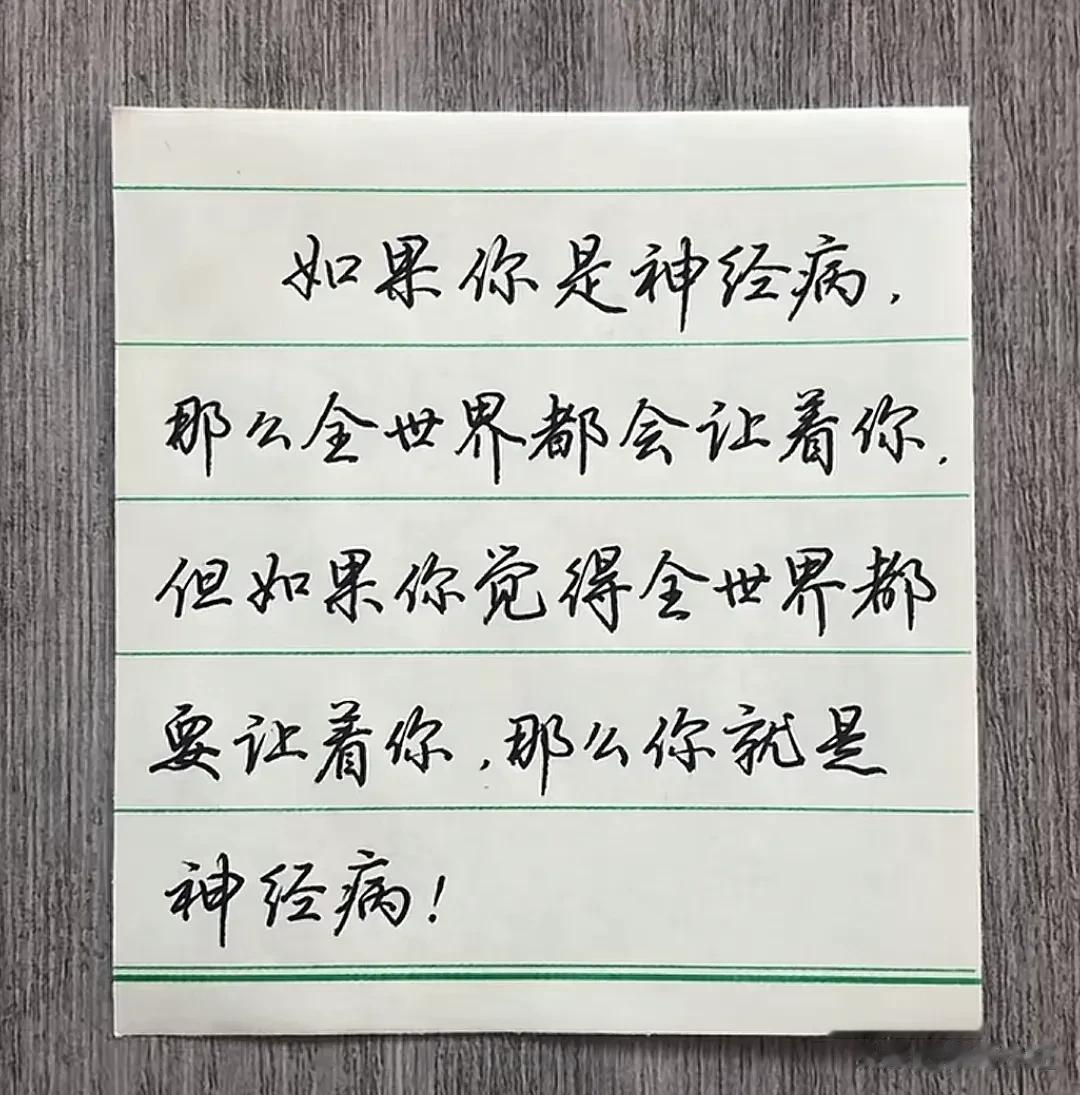 如果你是神经病,
那么全世界都会让着你.
但如果你觉得全世界都
要让着你,那么你就是
神经病!